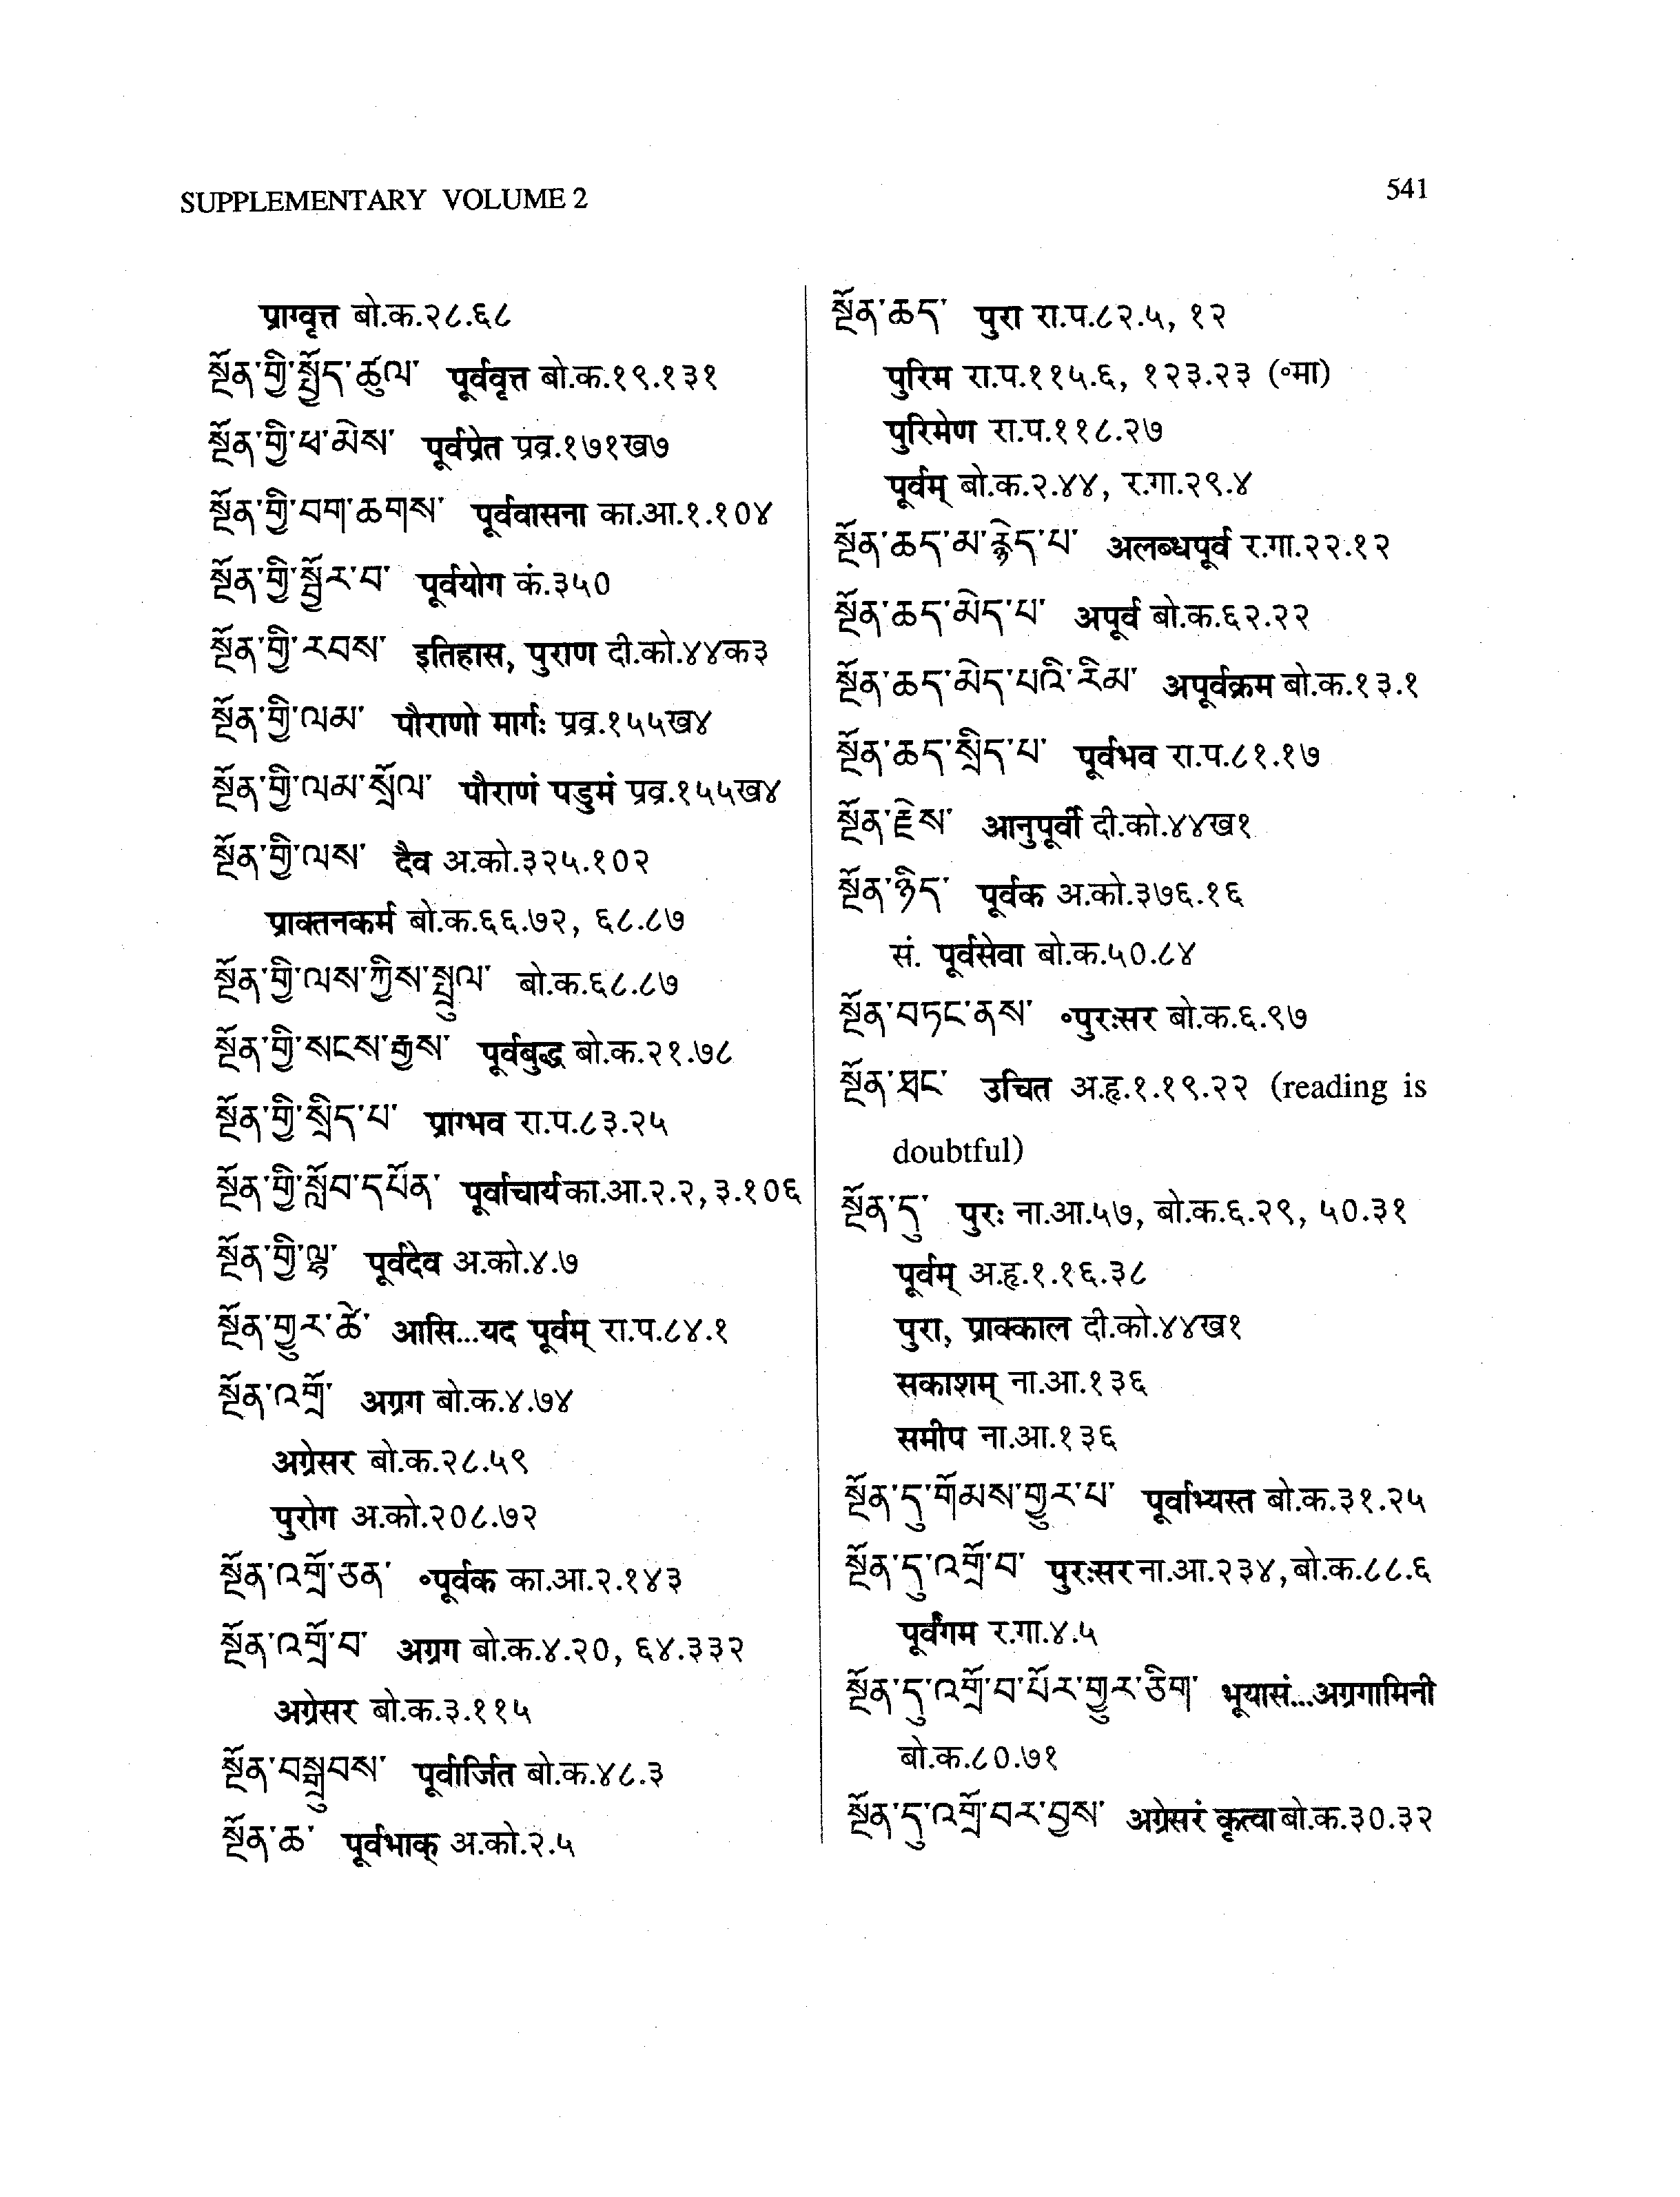 SUPPLEMENTARY VOLUME 2
541
प्राग्वृत्त बो.क.२८.६८
སྔོན་གྱི་སྤྱོད་ཚུལ་ पूर्ववृत्त बो.क.१९.१३१
སྔོན་གྱི་ཕ་མེས་ पूर्वप्रेत प्रव्र.१७१ख७
སྔོན་གྱི་བག་ཆགས་ पूर्ववासना का.आ.१.१०४
སྔོན་གྱི་སྦྱོར་བ་ पूर्वयोग कं.३५०
སྔོན་གྱི་རབས་ इतिहास, पुराण दी.को.४४क३
སྔོན་གྱི་ལམ་ पौराणो मार्गः प्रव्र.१५५ख४
སྔོན་གྱི་ལམ་སྲོལ་ पौराणं पडुमं प्रव्र.१५५ख४
སྔོན་གྱི་ལས་ दैव अ.को.३२५.१०२
प्राक्तनकर्म बो.क.६६.७२, ६८.८७
སྔོན་གྱི་ལས་ཀྱིས་སྤྲུལ་ बो.क.६८.८७
སྔོན་གྱི་སངས་རྒྱས་ पूर्वबुद्ध बो.क.२१.७८
སྔོན་གྱི་སྲིད་པ་ प्राग्भव रा.प.८३.२५
སྔོན་གྱི་སློབ་དཔོན་ पूर्वाचार्य का.आ.२.२, ३.१०६
སྔོན་གྱི་ལྷ་ पूर्वदेव अ.को.४.७
སྔོན་གྱུར་ཚེ་ आसि...यद पूर्वम् रा.प.८४.१
སྔོན་འགྲོ་ अग्रग बो.क.४.७४
अग्रेसर बो.क.२८.५९
पुरोग अ.को.२०८.७२
སྔོན་འགྲོ་ཅན་ ॰पूर्वक का.आ.२.१४३
སྔོན་འགྲོ་བ་ अग्रग बो.क.४.२०, ६४.३३२
अग्रेसर बो.क.३.११५
སྔོན་བསྒྲུབས་ पूर्वार्जित बो.क.४८.३
སྔོན་ཆ་ पूर्वभाक् अ.को.२.५
སྔོན་ཆད་ पुरा रा.प.८२.५, १२
पुरिम रा.प.११५.६, १२३.२३ (॰मा)
पुरिमेण रा.प.११८.२७
पूर्वम् बो.क.२.४४, र.गा.२९.४
སྔོན་ཆད་མ་རྙེད་པ་ अलब्धपूर्व र.गा.२२.१२
སྔོན་ཆད་མེད་པ་ अपूर्व बो.क.६२.२२
སྔོན་ཆད་མེད་པའི་རིམ་ अपूर्वक्रम बो.क.१३.१
སྔོན་ཆད་སྲིད་པ་ पूर्वभव रा.प.८१.१७
སྔོན་རྗེས་ आनुपूर्वी दी.को.४४ख१
སྔོན་ཉིད་ पूर्वक अ.को.३७६.१६
सं. पूर्वसेवा बो.क.५०.८४
སྔོན་བཏང་ནས་ ॰पुरःसर बो.क.६.९७
སྔོན་ཐང་ उचित अ.हृ.१.१९.२२ (reading is
doubtful)
སྔོན་དུ་ पुरः ना.आ.५७, बो.क.६.२९, ५०.३१
पूर्वम् अ.हृ.१.१६.३८
पुरा, प्राक्काल दी.को.४४ख१
सकाशम् ना.आ.१३६
समीप ना.आ.१३६
སྔོན་དུ་གོམས་གྱུར་པ་ पूर्वाभ्यस्त बो.क.३१.२५
སྔོན་དུ་འགྲོ་བ་ पुरःसर ना.आ.२३४, बो.क.८८.६
पूर्वंगम र.गा.४.५
སྔོན་དུ་འགྲོ་བ་པོར་གྱུར་ཅིག་ भूयासं...अग्रगामिनी
बो.क.८०.७१
སྔོན་དུ་འགྲོ་བར་བྱས་ अग्रेसरं कृत्वा बो.क.३०.३२